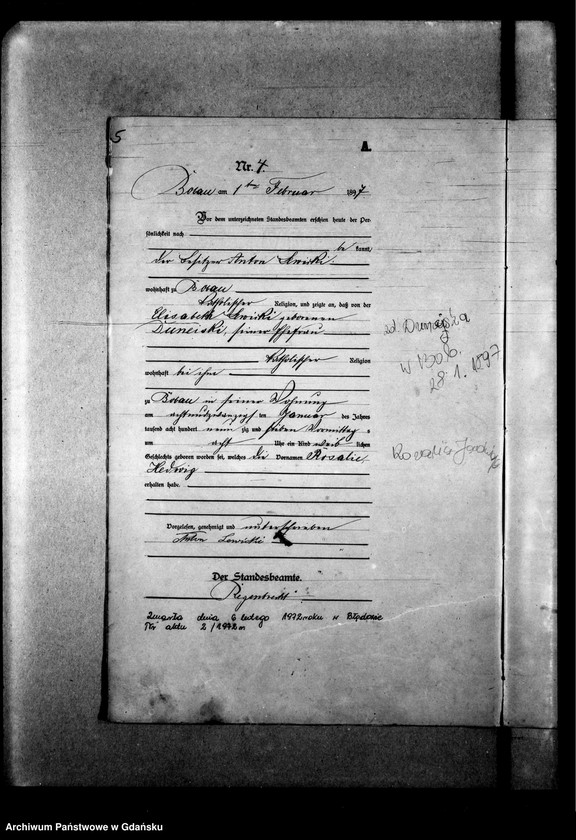 5
A.
Nr. 4.
Borau am 1ten Februar 1897
Vor dem unterzeichneten Standesbeamten erschien heute, der Per-
sönlichkeit nach
be kannt,
der Besitzer Anton Lewicki
wohnhaft zu Borau
katholischer Religion, und zeigte an, daß von der
Elisabeth Lewicki geborenen
Duneiski, seiner Ehefrau
katholischer Religion
wohnhaft bei ihm
zu Borau in seiner Wohnung
am achtundzwanzigsten Januar des Jahres
tausend acht hundert neun zig und sieben Vormittag s
um acht Uhr ein Kind weib lichen
Geschlechts geboren worden sei, welches die Vornamen Rosalie,
Hedwig
erhalten habe.
Vorgelesen, genehmigt und unterschrieben
Anton Lewicki
Der Standesbeamte.
Regenbrecht
Zmarła dnia 6 lutego 1972 roku w Błędowie
Nr aktu 2/1972
28.1.1897
Archiwum Państwowe w Gdańsku